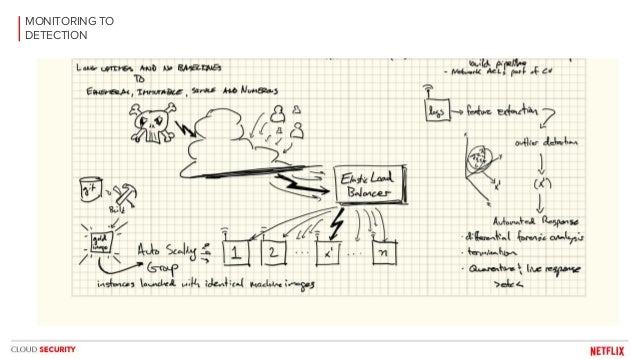 MONITORING TO
DETECTION
LONG LATCHES AND NO BASELINES
TO
EPHEMERAL, IMMUTABLE, SIMPLE AND NUMEROUS
build pipeline
- Network ACLs part of CD
logs → feature extraction
outlier detection
x'
(x')
Elastic Load
Balancer
git
Build
gold
image
Auto Scaling
Group
1 2 ... x' ... n
instances launched with identical machine images
Automated Response
- differential forensic analysis
- termination
- Quarantine & live response
CLOUD SECURITY
NETFLIX